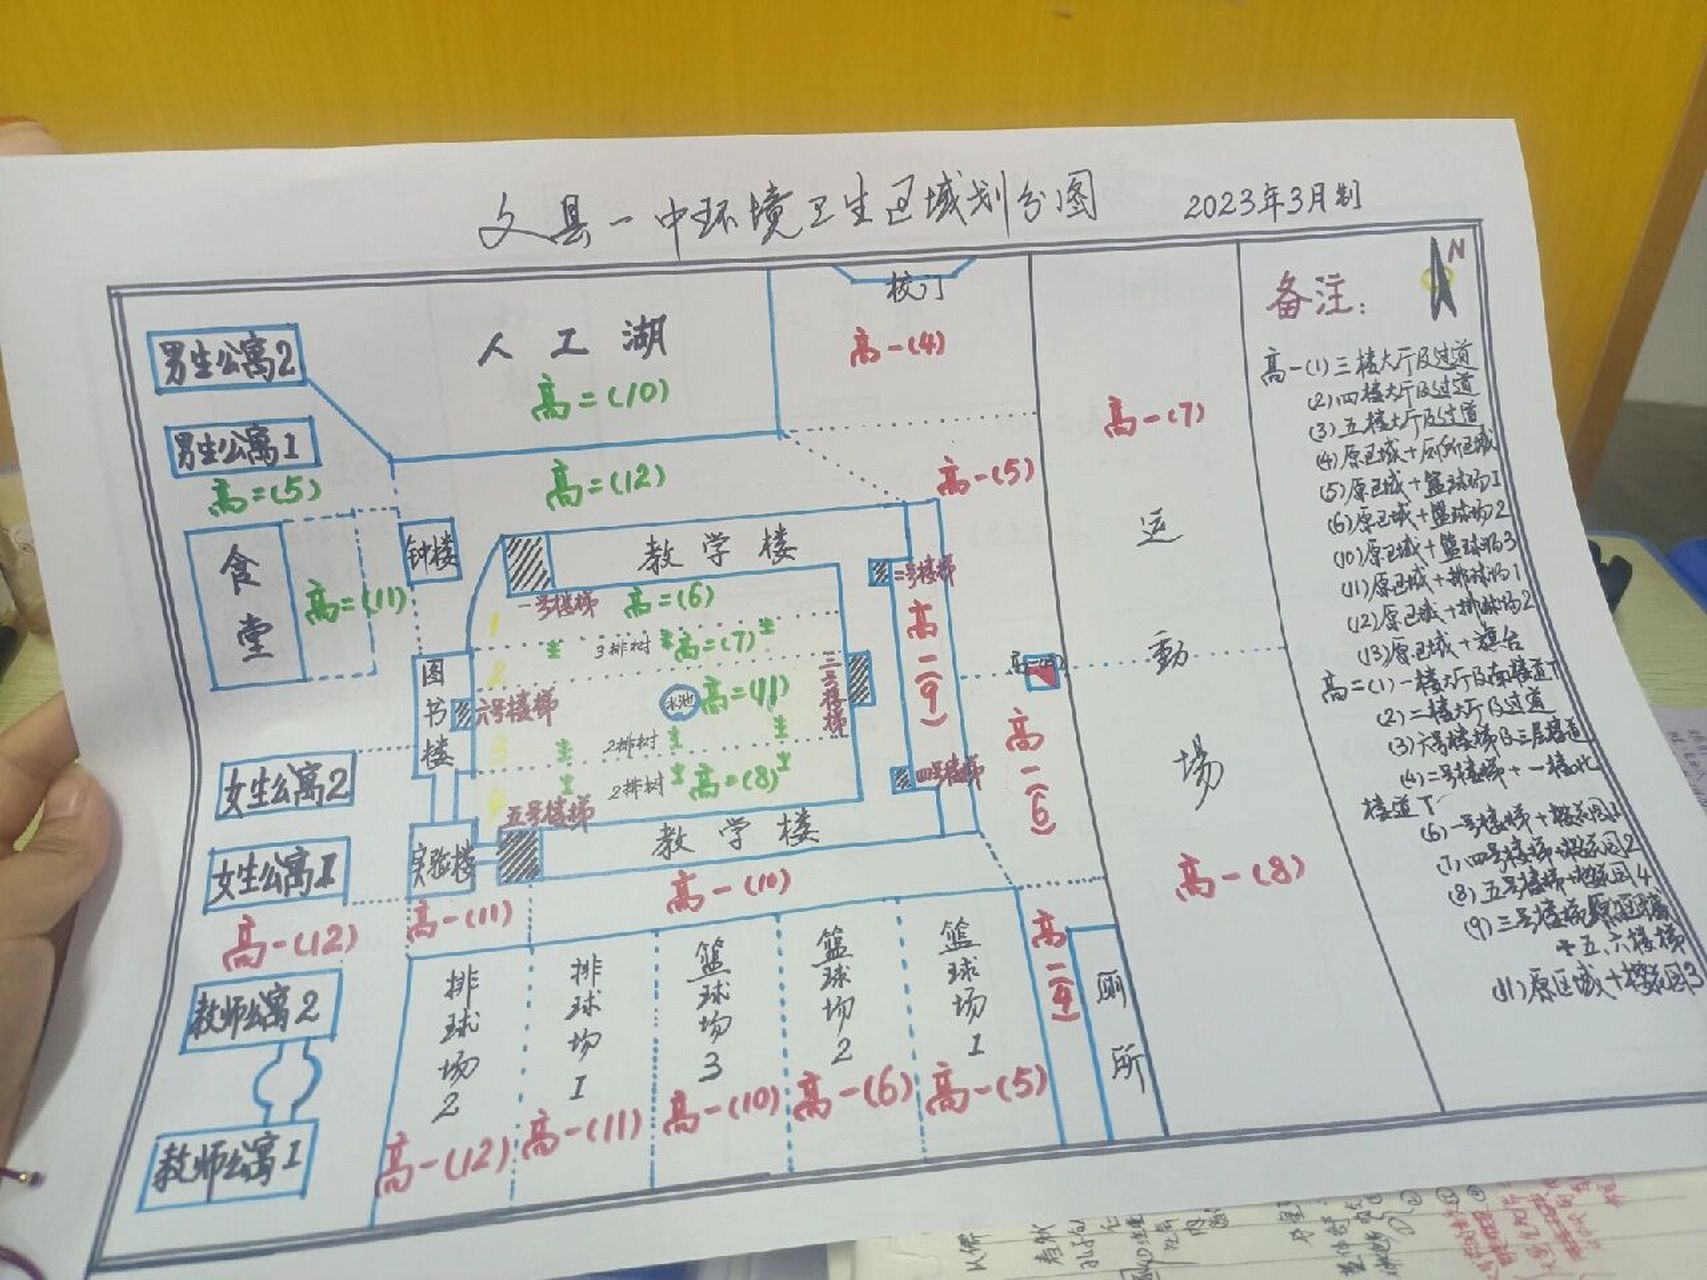 文县一中环境卫生区域划分图
2023年3月制
N
校门
高一(4)
人工湖
高二(10)
男生公寓2
男生公寓1
高二(5)
高二(12)
高一(5)
高一(7)
运动场
高一(8)
食堂
高二(11)
钟楼
教学楼
一号楼梯
高二(6)
二号楼梯
1
3排树
高二(7)
2
图书楼
六号楼梯
水池
高二(11)
三号楼梯
高二(9)
3
2排树
4
2排树
高二(8)
四号楼梯
高一(6)
五号楼梯
教学楼
女生公寓2
女生公寓1
实验楼
高一(12)
高一(11)
高一(10)
高一(4)
厕所
教师公寓2
教师公寓1
排球场2
高一(12)
排球场1
高一(11)
篮球场3
高一(10)
篮球场2
高一(6)
篮球场1
高一(5)
备注：
高一(1)三楼大厅及过道
(2)四楼大厅及过道
(3)五楼大厅及过道
(4)原区域+厕所区域
(5)原区域+篮球场1
(6)原区域+篮球场2
(10)原区域+篮球场3
(11)原区域+排球场1
(12)原区域+排球场2
(13)原区域+旗台
高二(1)一楼大厅及南楼道下
(2)二楼大厅及过道
(3)六号楼梯及三层楼道
(4)二号楼梯+一楼北
楼道下
(6)一号楼梯+樱花园1
(7)四号楼梯+樱花园2
(8)五号楼梯+樱花园4
(9)三号楼梯原区域
+五、六楼梯
(11)原区域+樱花园3